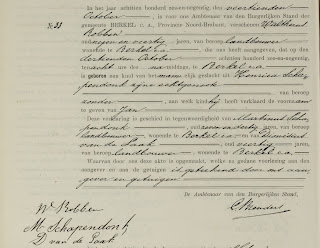 In het jaar achttien honderd zes-en-negentig, den veertienden
October, is voor ons Ambtenaar van den Burgerlijken Stand der
gemeente BERKEL c. a., Provincie Noord-Brabant, verschenen Wilhelmus
No. 33 Robben
oud negen en veertig, jaren, van beroep landbouwer
wonende te Berkel c.a. die ons heeft aangegeven, dat op den
dertienden October, achttien honderd zes-en-negentig,
ten acht ure des na-middags, te Berkel c.a.
is geboren een kind van het mannelijk geslacht uit Henrica Scha-
pendonk zijne echtgenoote, van beroep
zonder, aan welk kind hij heeft verklaard de voornaam
te geven van Jan
Deze verklaring is geschied in tegenwoordigheid van Martinus Scha-
pendonk, oud zeven en dertig jaren, van beroep
landbouwer, wonende te Berkel c.a. en van Dionisius
van de Zaak, oud veertig jaren,
van beroep landbouwer, wonende te Berkel c.a.
Waarvan door ons deze akte is opgemaakt, welke na gedane voorlezing aan den
aangever en aan de getuigen is geteekend door ons aan-
gever en getuigen
De Ambtenaar van den Burgerlijken Stand,
W Robben
M Schapendonk
D van de Zaak